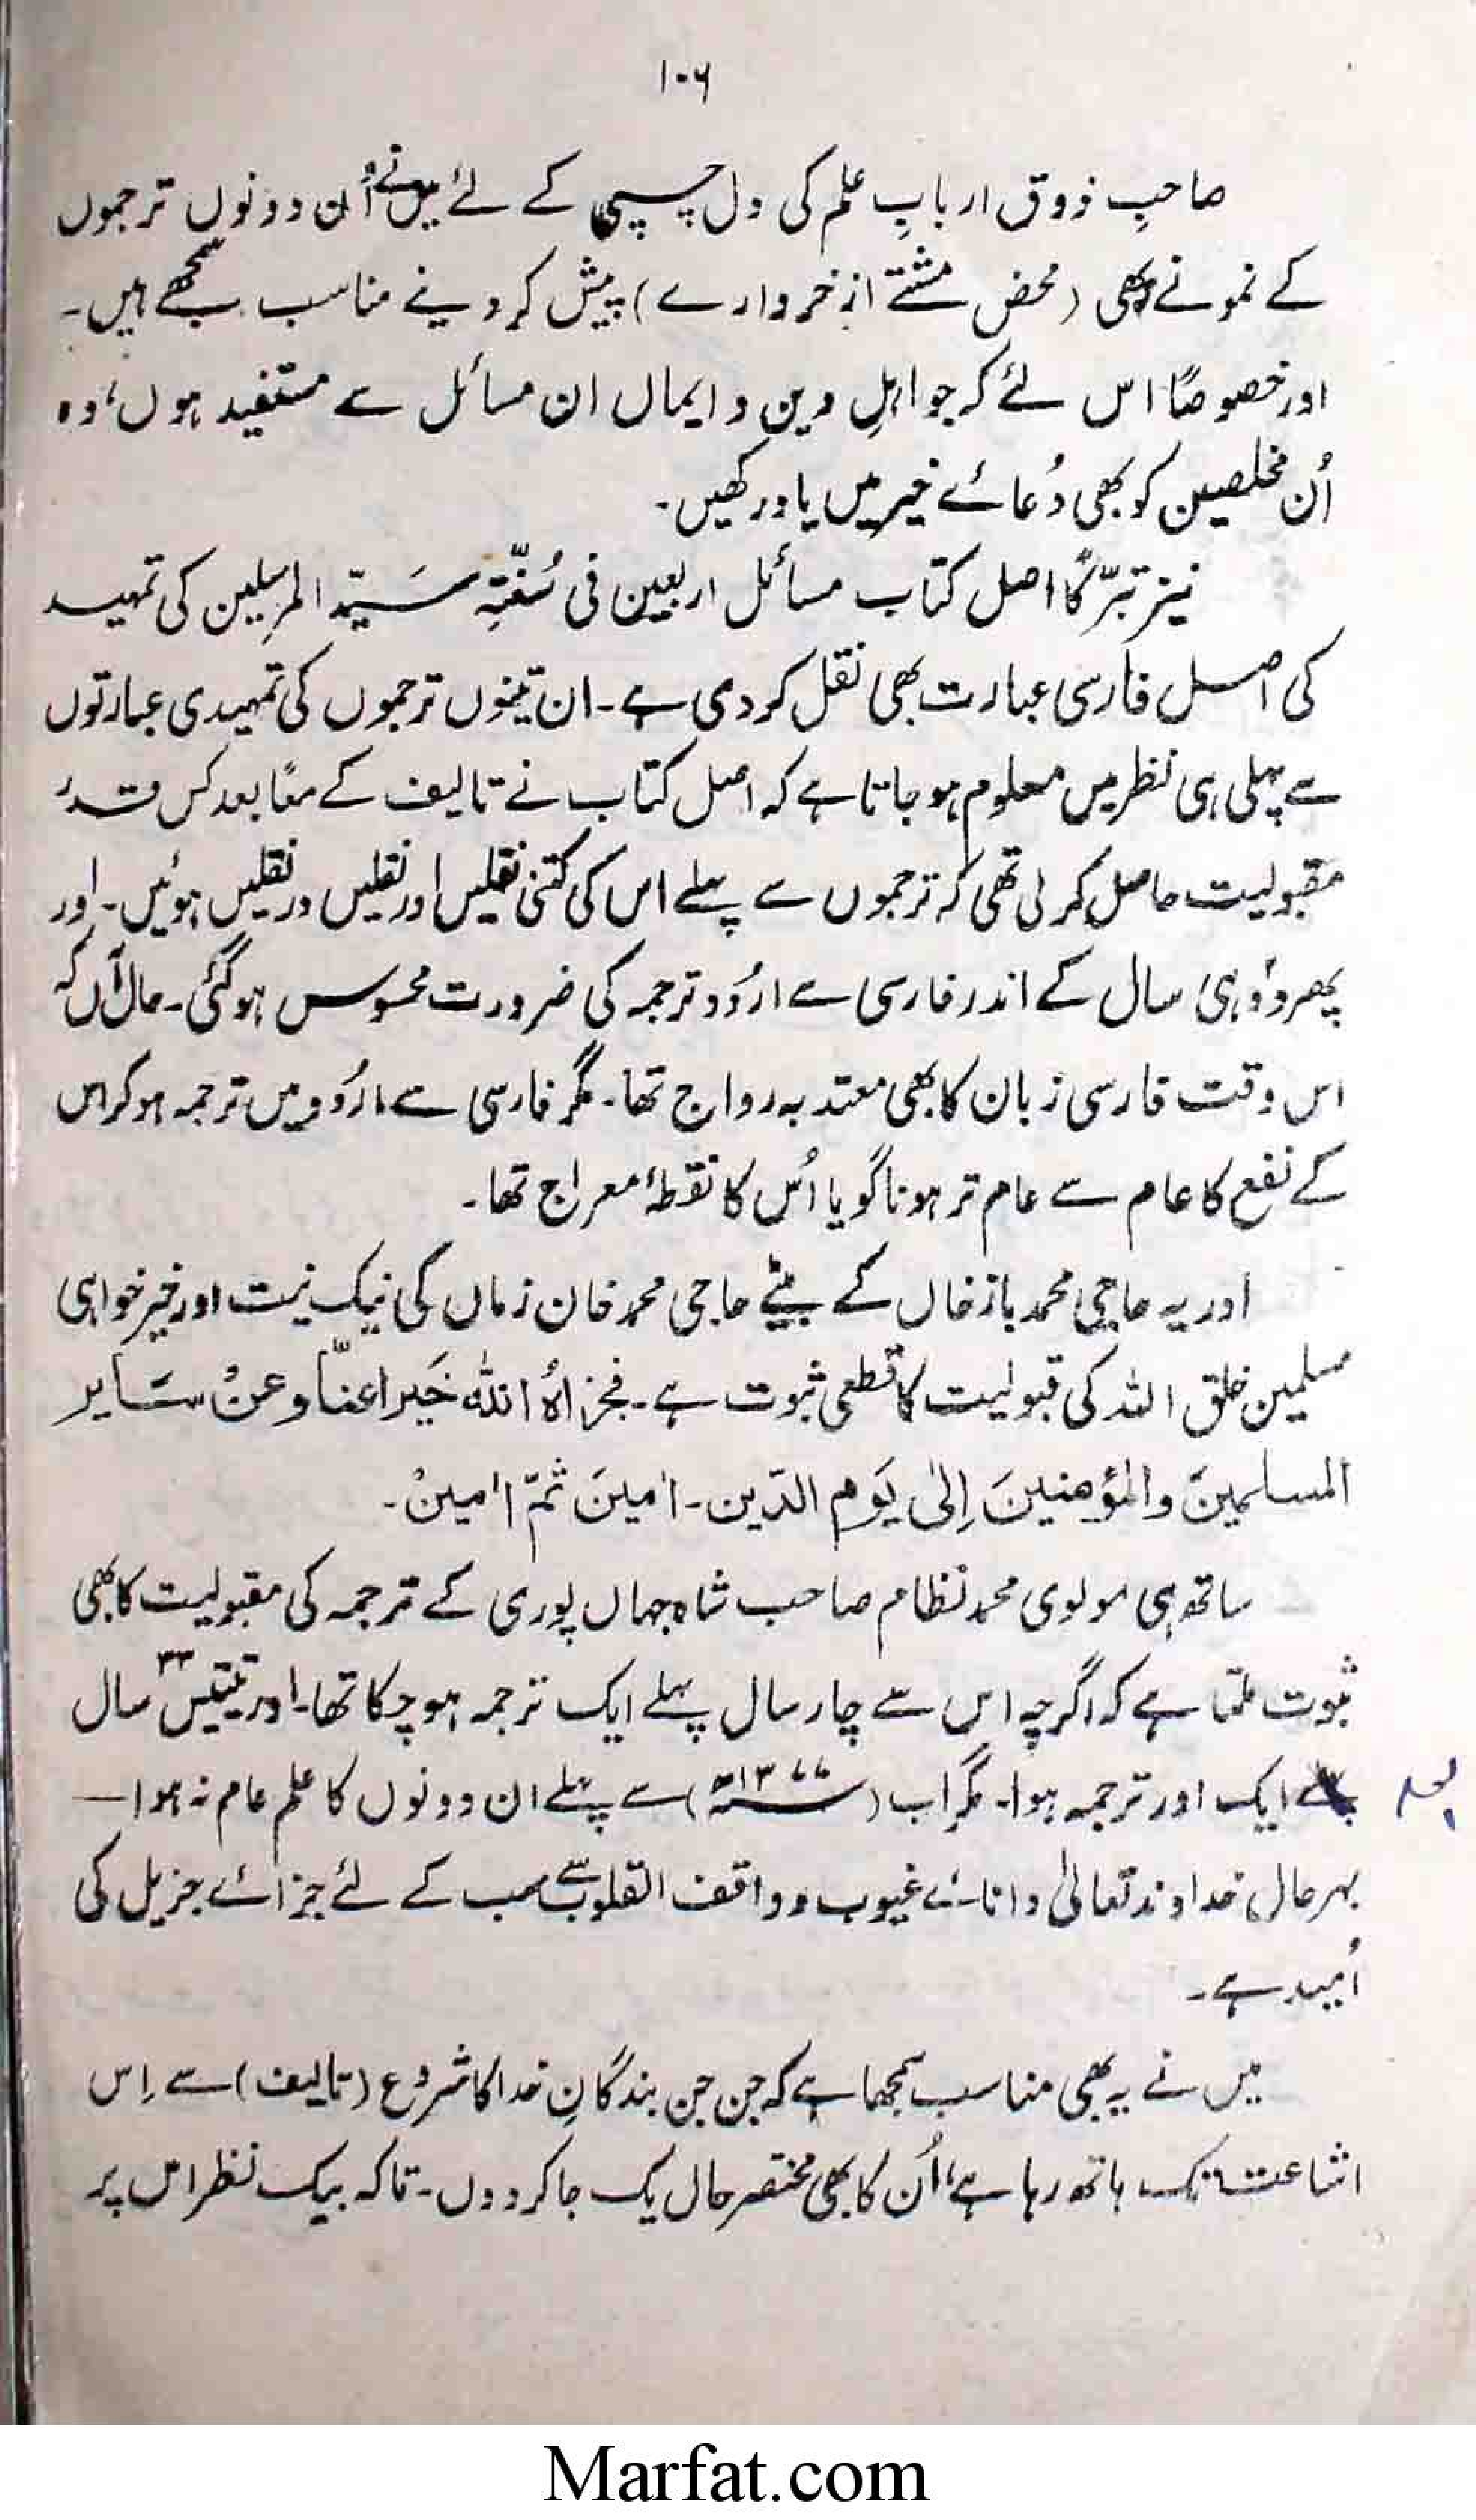 ۱۰۶
صاحبِ ذوق اربابِ علم کی دل چسپی کے لئے میں نے اُن دونوں ترجموں
کے نمونے بھی (محض مشتے از خروارے) پیش کر دینے مناسب سمجھے ہیں۔
اور خصوصاً اس لئے کہ جو اہلِ دین و ایمال ان مسائل سے مستفید ہوں، وہ
اُن مخلصین کو بھی دُعائے خیر میں یاد رکھیں۔
نیز تبرّکاً اصل کتاب مسائل اربعین فی سُنّتِہ سَیّد المرسلین کی تمہید
کی اصل فارسی عبارت بھی نقل کر دی ہے۔ ان تینوں ترجموں کی تمہیدی عبارتوں
سے پہلی ہی نظر میں معلوم ہو جاتا ہے کہ اصل کتاب نے تالیف کے معًا بعد کس قدر
مقبولیت حاصل کر لی تھی کہ ترجموں سے پہلے اس کی کتنی نقلیں اور نقلیں در نقلیں ہوئیں۔ اور
پھر دو ہی سال کے اندر فارسی سے اردو ترجمہ کی ضرورت محسوس ہو گئی۔ حال آں کہ
اس وقت فارسی زبان کا بھی معتد بہ رواج تھا۔ مگر فارسی سے اردو میں ترجمہ ہو کر اس
کے نفع کا عام سے عام تر ہونا گویا اُس کا نقطۂ معراج تھا۔
اور یہ حاجی محمد باز خاں کے بیٹے حاجی محمد خان زماں کی نیک نیت اور خیر خواہی
مسلمین خلق اللہ کی قبولیت کا قطعی ثبوت ہے۔ فجزاہُ اللہ خَیرا عنّا وعنْ سَایر
المسلمینَ والمؤمنینَ اِلیٰ یَوم الدّین۔ اٰمینَ ثمّ اٰمینْ۔
ساتھ ہی مولوی محمد نظام صاحب شاہ جہاں پوری کے ترجمہ کی مقبولیت کا بھی
ثبوت ملتا ہے کہ اگرچہ اس سے چار سال پہلے ایک ترجمہ ہو چکا تھا۔ اور تینتیس ۳۳ سال
ایک اور ترجمہ ہوا۔ مگر اب (۱۳۷۷ھ) سے پہلے ان دونوں کا علم عام نہ ہوا —
بہر حال، خداوند تعالیٰ دانائے غیوب و واقف القلوب سے سب کے لئے جزائے جزیل کی
اُمید ہے۔
میں نے یہ بھی مناسب سمجھا ہے کہ جن جن بندگانِ خدا کا شروع (تالیف) سے اِس
اشاعت تک ہاتھ رہا ہے، اُن کا بھی مختصر حال یک جا کر دوں۔ تاکہ بیک نظر اس پر
Marfat.com